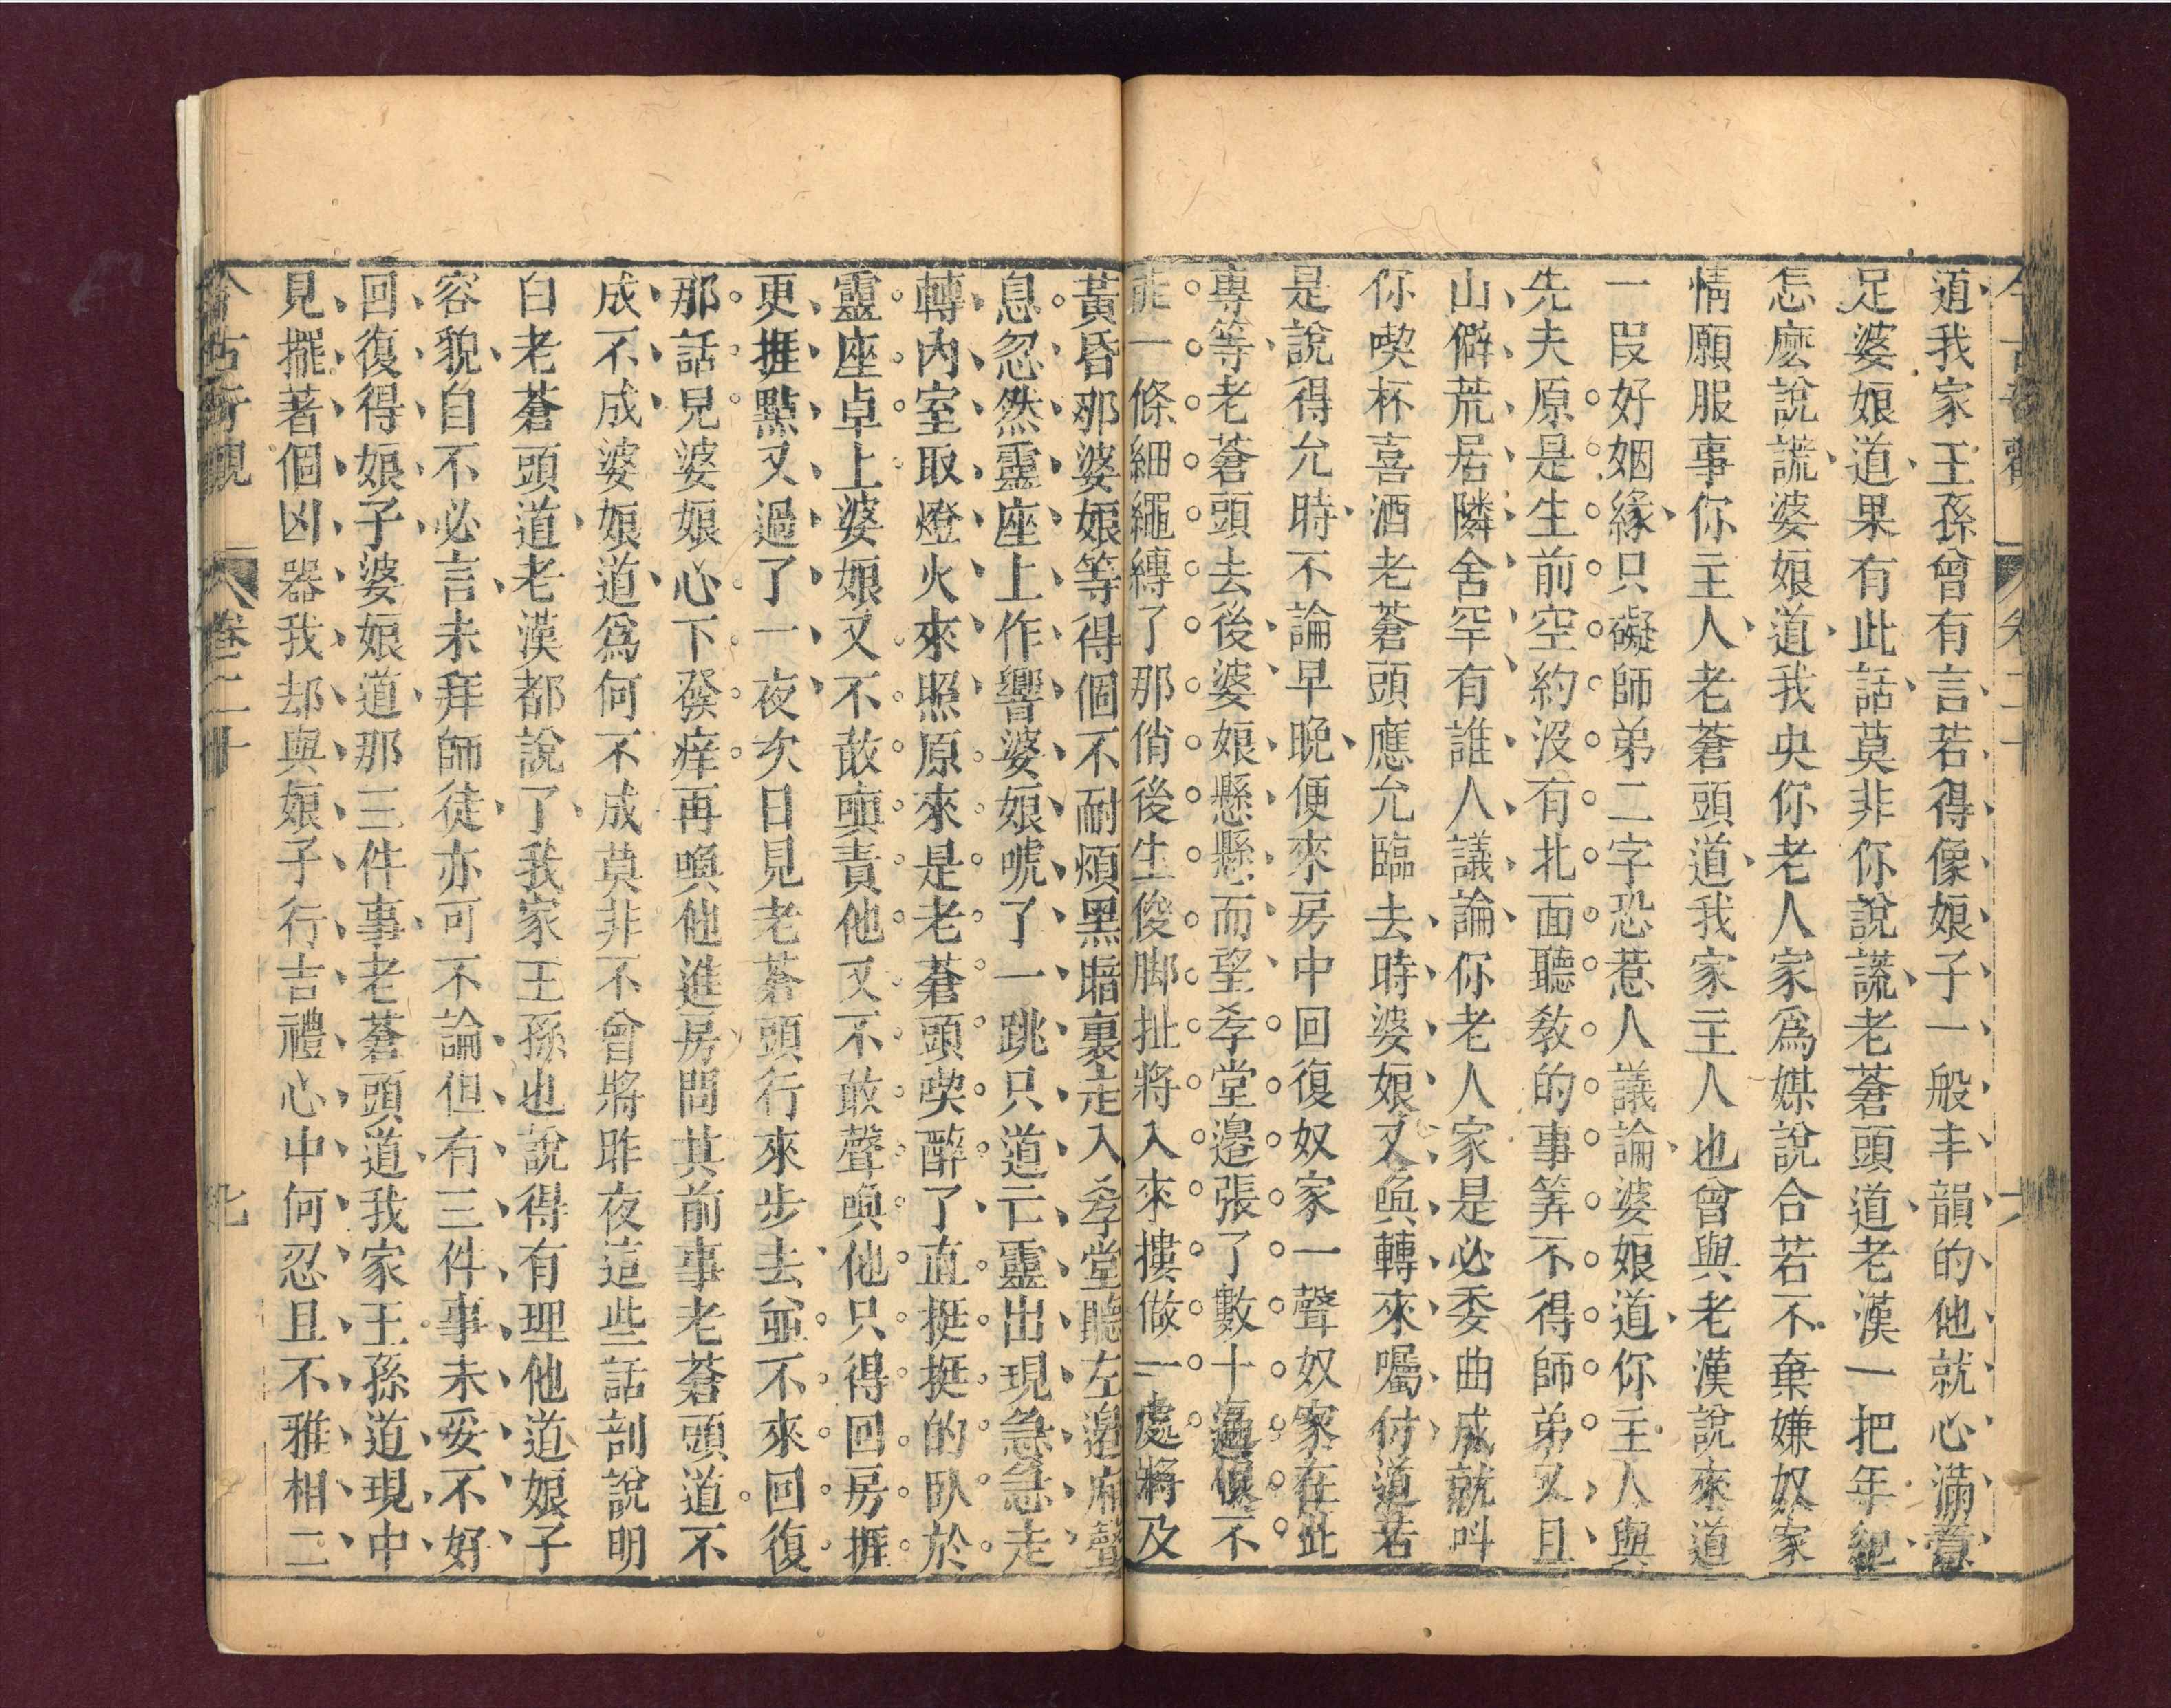 今古奇觀 卷二十 六
道我家王孫曾有言若得像娘子一般丰韻的他就心滿意
足婆娘道果有此話莫非你說謊老蒼頭道老漢一把年紀
怎麽說謊婆娘道我央你老人家爲媒說合若不棄嫌奴家
情願服事你主人老蒼頭道我家主人也曾與老漢說來道
一叚好姻緣只礙師弟二字恐惹人議論婆娘道你主人與
先夫原是生前空約沒有北面聽教的事筭不得師弟又且
山僻荒居隣舍罕有誰人議論你老人家是必委曲成就呌
你喫杯喜酒老蒼頭應允臨去時婆娘又喚轉來囑付道若
是說得允時不論早晚便來房中回復奴家一聲奴家在此
專等老蒼頭去後婆娘懸懸而望孝堂邊張了數十遍恨不
能一條細繩縛了那俏後生俊脚扯將入來摟做一處將及
黃昏那婆娘等得個不耐煩黑暗裏走入孝堂聽左邊廂聲
息忽然靈座上作響婆娘唬了一跳只道亡靈出現急急走
轉內室取燈火來照原來是老蒼頭喫醉了直挺挺的臥於
靈座卓上婆娘又不敢嗔責他又不敢聲喚他只得回房捱
更捱點又過了一夜次日見老蒼頭行來步去並不來回復
那話兒婆娘心下發痒再喚他進房問其前事老蒼頭道不
成不成婆娘道爲何不成莫非不曾將昨夜這些話剖說明
白老蒼頭道老漢都說了我家王孫也說得有理他道娘子
容貌自不必言未拜師徒亦可不論但有三件事未妥不好
回復得娘子婆娘道那三件事老蒼頭道我家王孫道現中
見擺著個凶器我却與娘子行吉禮心中何忍且不雅相二
今古奇觀 卷二十